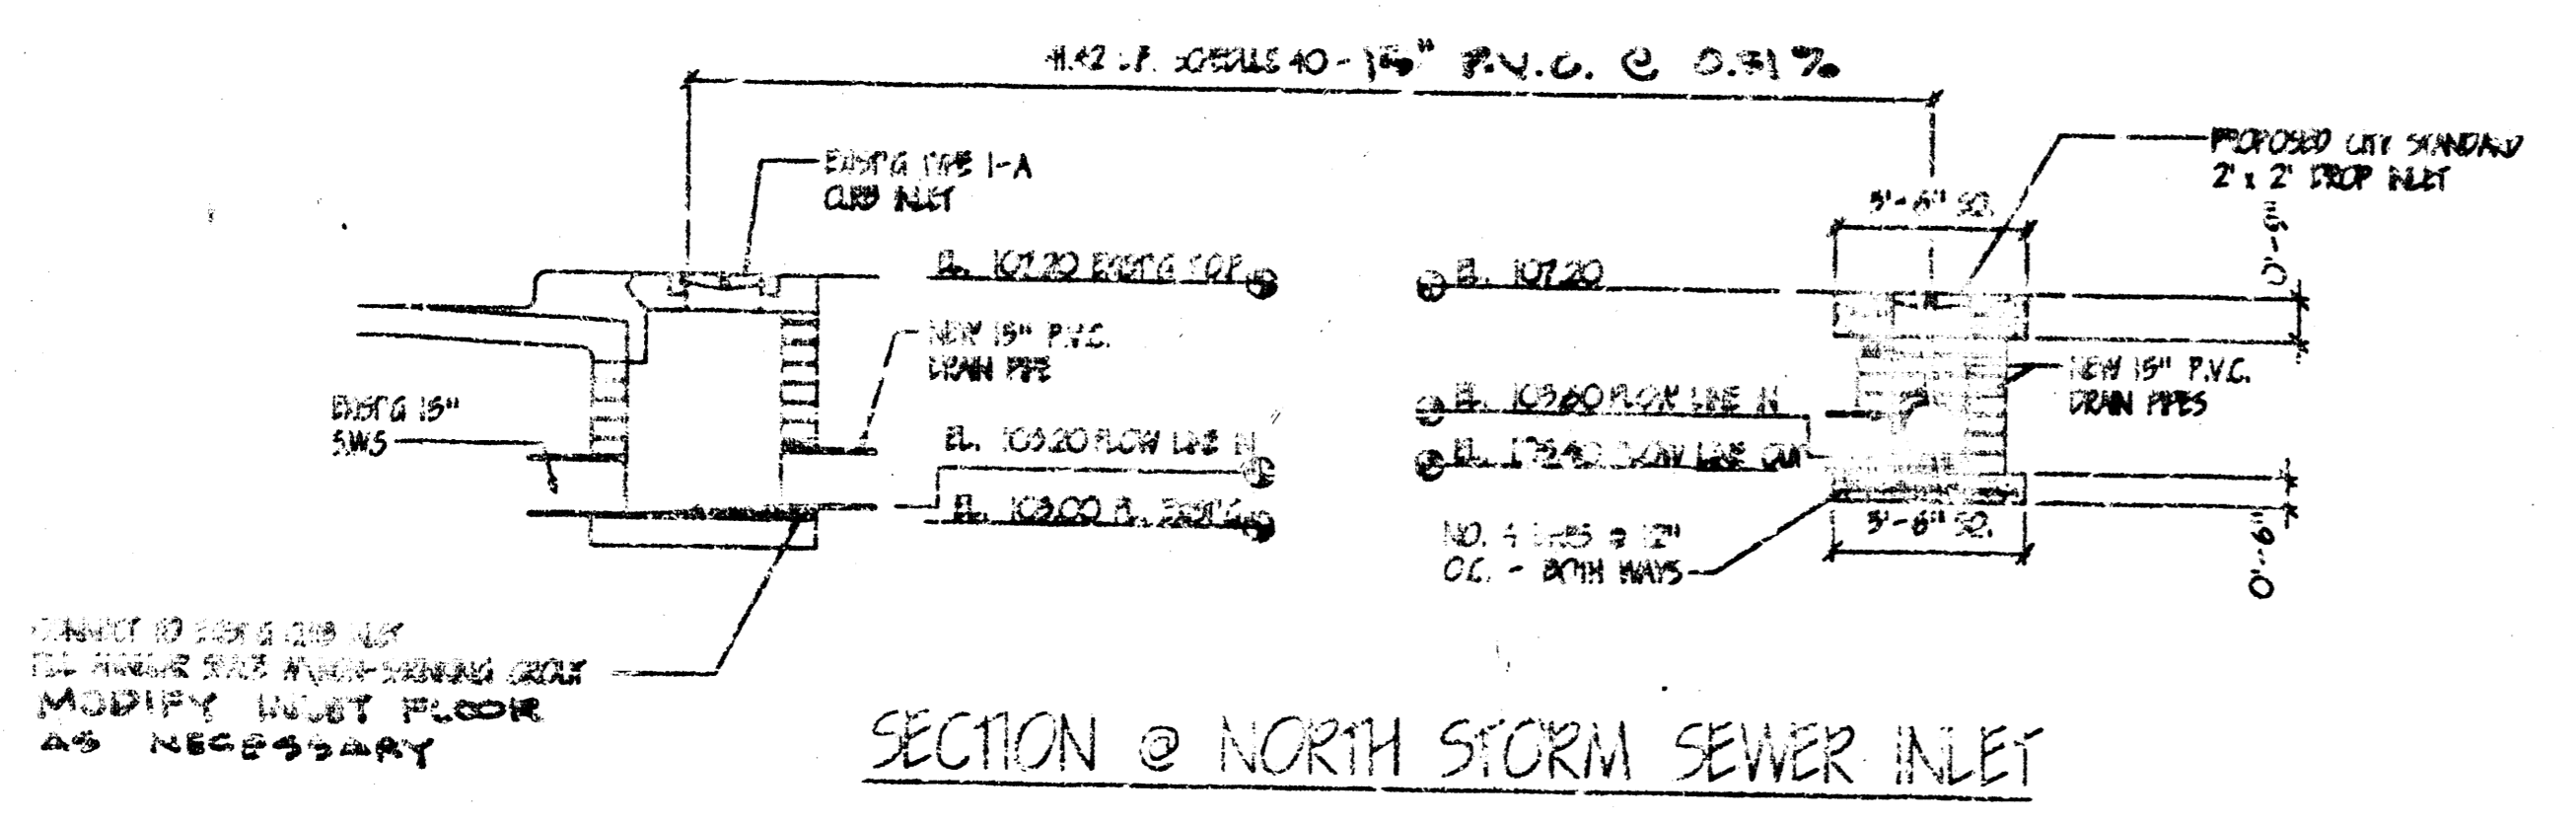 P.V.C. @ 0.31%
EXIST'G TYPE 1-A
CURB INLET
PROPOSED CITY STANDARD
2' x 2' DROP INLET
3'-6" SQ.
0'-5"
EL. 107.20 EXIST'G TOP
EL. 107.20
NEW 15" P.V.C.
DRAIN PIPE
NEW 15" P.V.C.
DRAIN PIPES
EXIST'G 15"
S.W.S
EL. 103.60 FLOW LINE IN
EL. 103.20 FLOW LINE IN
FLOW LINE OUT
EL. 103.00 FL. EXIST'G
NO. 4 BARS @ 12"
O.C. - BOTH WAYS
3'-6" SQ.
0'-6"
CONNECT TO EXIST'G CURB INLET
FILL ANNULAR SPACE W/NON-SHRINKING GROUT
MODIFY INLET FLOOR
AS NECESSARY
SECTION @ NORTH STORM SEWER INLET